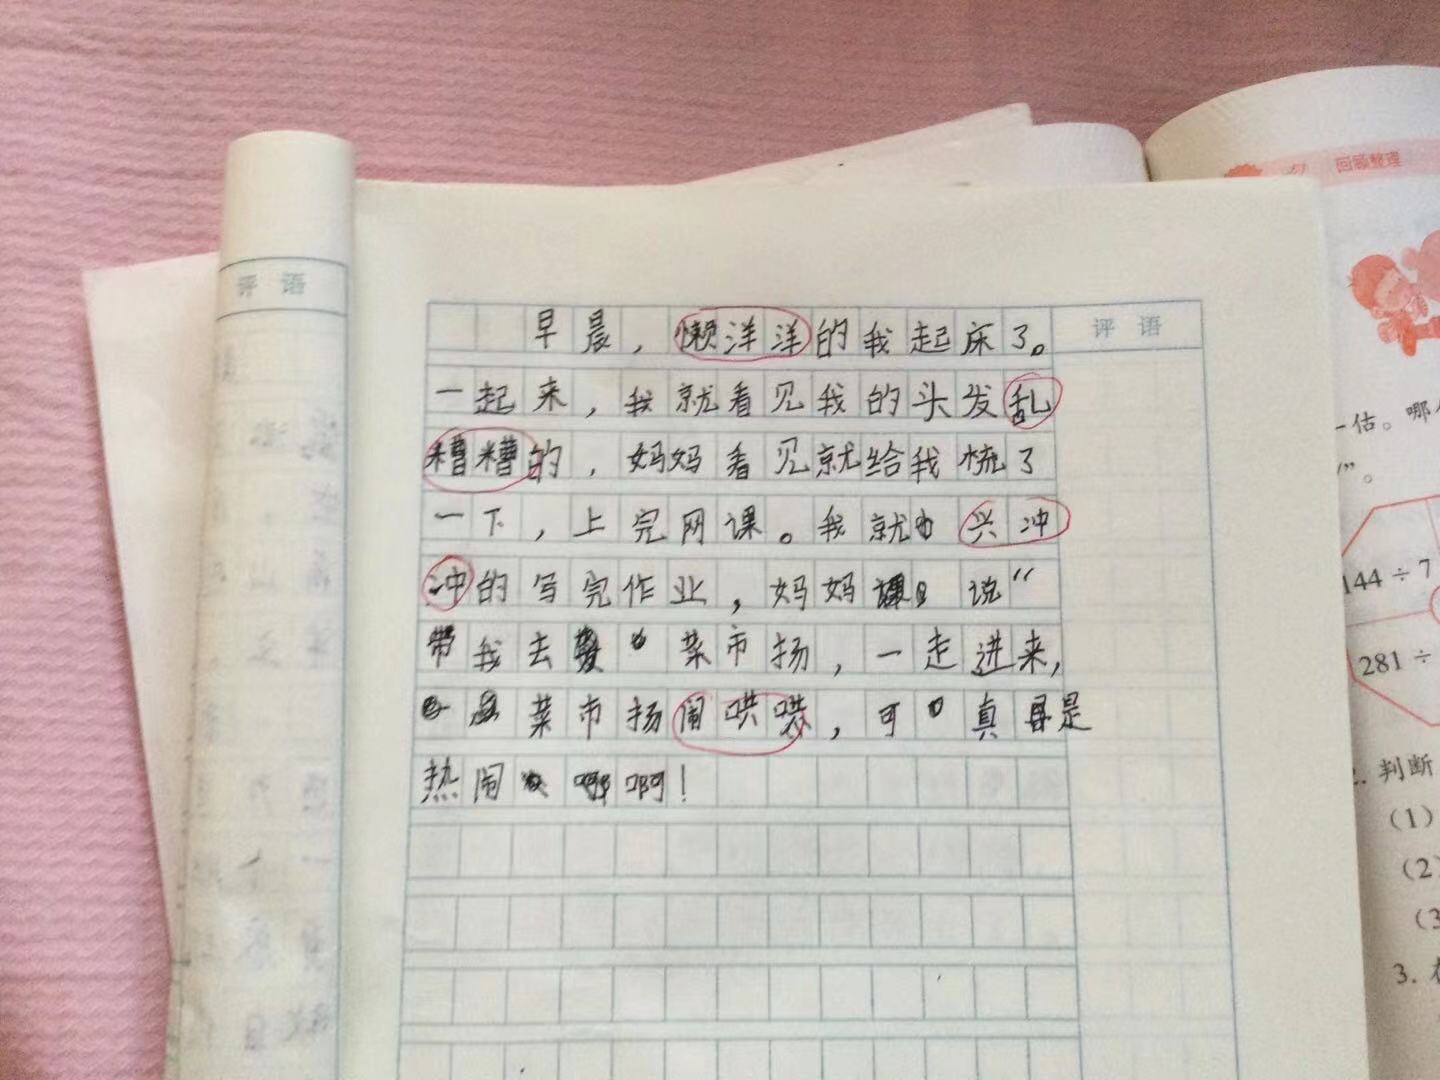 评 语
回顾整理
早晨，懒洋洋的我起床了。
评 语
一起来，我就看见我的头发乱
糟糟的，妈妈看见就给我梳了
一下，上完网课。我就兴冲
冲的写完作业，妈妈说“
带我去菜市扬，一走进来，
菜市扬闹哄哄，可真是
热闹啊！
一估。哪
”。
144÷7
281÷
2. 判断
（1）
（2）
（3
3.